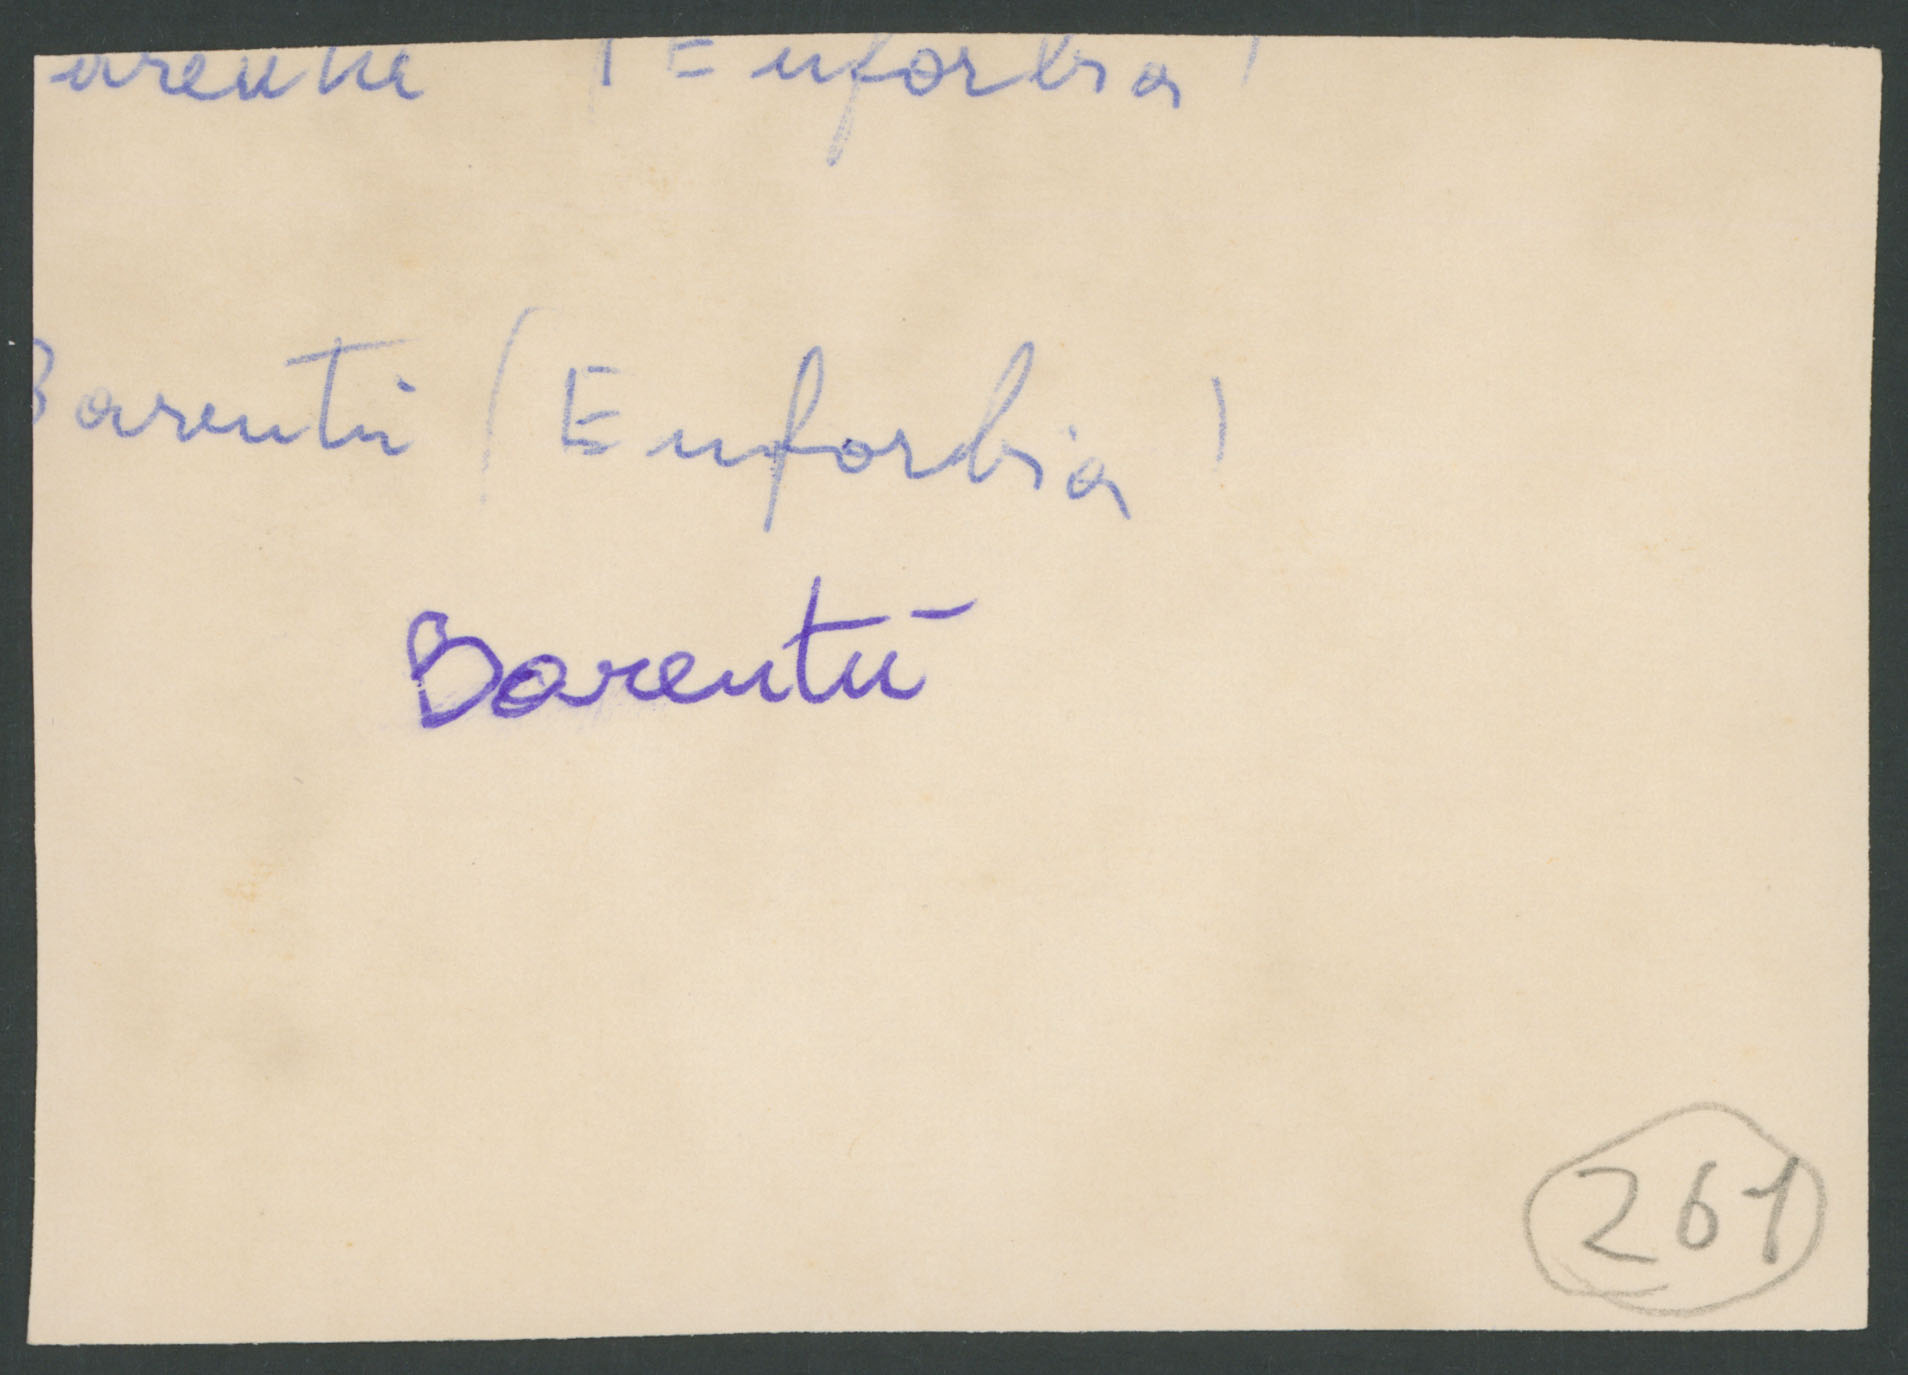 arentu (Euforbia)
Barentù (Euforbia)
Barentù
261